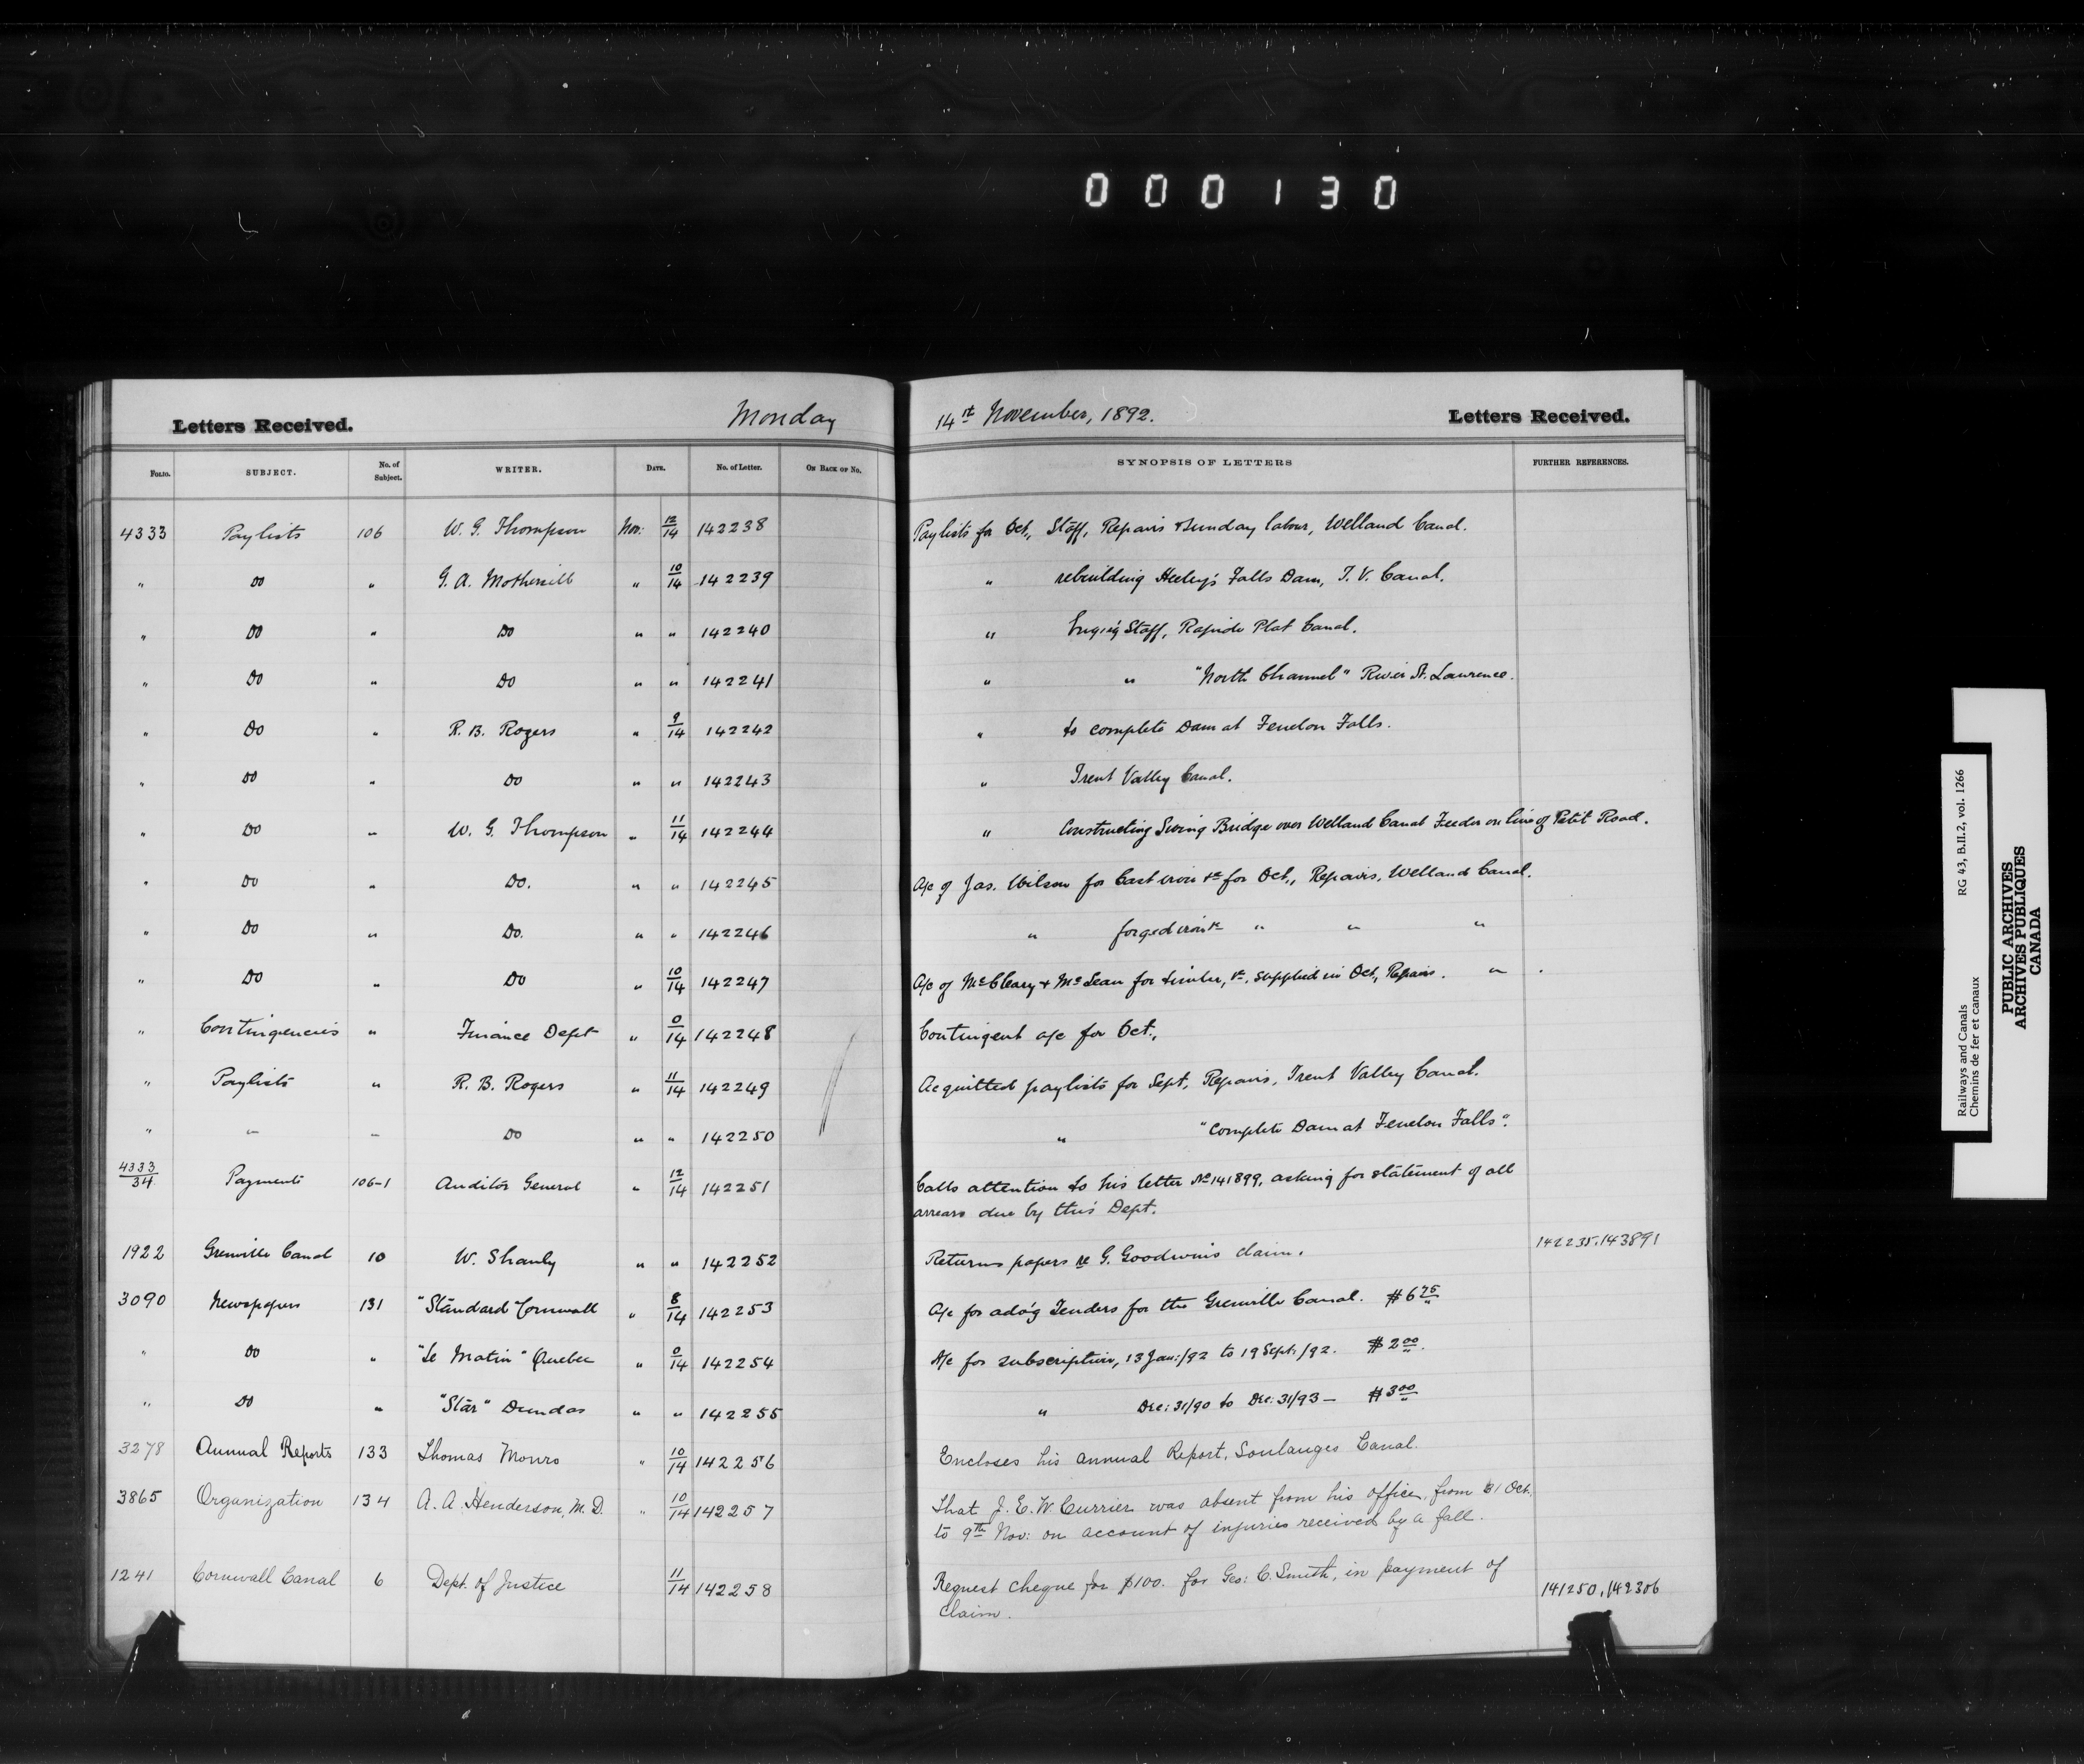 000130
Letters Received. Monday 14th November, 1892. Letters Received.
Folio. SUBJECT. No. of Subject. WRITER. Date. No. of Letter. On Back of No. SYNOPSIS OF LETTERS FURTHER REFERENCES.
4333 Paylists 106 W. G. Thompson Nov: 12/14 142238 Paylists for Oct., Staff, Repairs & Sunday labour, Welland Canal.
" Do " G. A. Mothersill " 10/14 142239 " rebuilding Heeley's Falls Dam, T. V. Canal.
" Do " Do " " 142240 " Engin'g Staff, Rapide Plat Canal.
" Do " Do " " 142241 " " "North Channel" River St. Lawrence.
" Do " R. B. Rogers " 9/14 142242 " to complete Dam at Fenelon Falls.
" Do " Do " " 142243 " Trent Valley Canal.
" Do " W. G. Thompson " 11/14 142244 " Constructing Swing Bridge over Welland Canal Feeder on line of Petit Road.
" Do " Do. " " 142245 A/c of Jas. Wilson for Cast iron &c for Oct., Repairs, Welland Canal.
" Do " Do. " " 142246 " forged iron &c " " "
" Do " Do " 10/14 142247 A/c of McCleary & McLean for timber, &c, supplied in Oct., Repairs. "
" Contingencies " Finance Dept " 0/14 142248 Contingent a/c for Oct.,
" Paylists " R. B. Rogers " 11/14 142249 Acquitted paylists for Sept, Repairs, Trent Valley Canal.
" " " Do " " 142250 " "Complete Dam at Fenelon Falls".
4333/34 Payments 106-1 Auditor General " 12/14 142251 Calls attention to his letter No 141899, asking for statement of all
arrears due by this Dept.
1922 Grenville Canal 10 W. Shanly " " 142252 Returns papers re G. Goodwin's claim. 142235, 143891
3090 Newspapers 131 "Standard" Cornwall " 8/14 142253 A/c for adv'g Tenders for the Grenville Canal. $6 75
" Do " "Le Matin" Quebec " 0/14 142254 A/c for subscription, 13 Jan:/92 to 19 Sept:/92. $2 00.
" Do " "Star" Dundas " " 142255 " Dec: 31/90 to Dec: 31/93 — $3 00
3278 Annual Reports 133 Thomas Monro " 10/14 142256 Encloses his annual Report, Soulanges Canal.
3865 Organization 134 A. A. Henderson, M. D. " 10/14 142257 That J. E. W. Currier was absent from his office, from 31 Oct.
to 9th Nov: on account of injuries received by a fall.
1241 Cornwall Canal 6 Dept. of Justice 11/14 142258 Request cheque for $100. for Geo: C. Smith, in payment of
claim. 141250, 142306
Railways and Canals RG 43, B.II.2, vol. 1266
Chemins de fer et canaux
PUBLIC ARCHIVES
ARCHIVES PUBLIQUES
CANADA